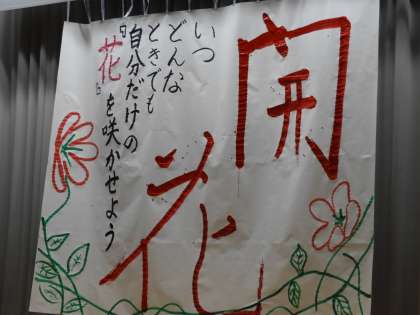 開花
いつ
どんな
ときでも
自分だけの
『花』を咲かせよう